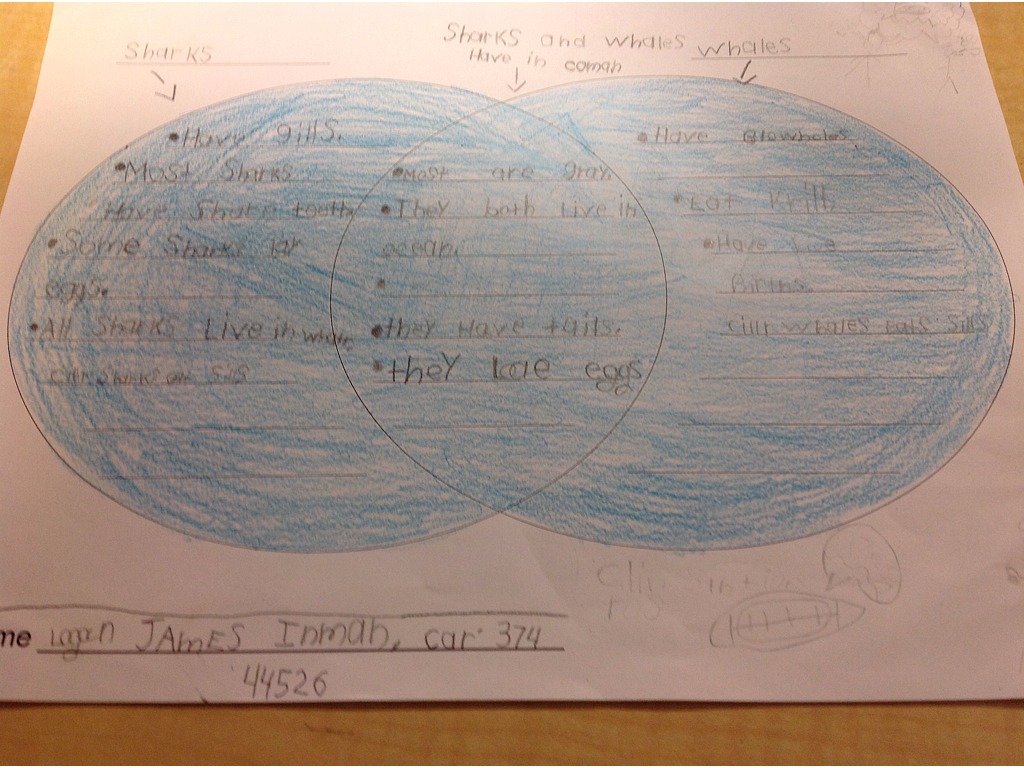 Sharks
Sharks and whales
Have in comah
whales
•Have gills.
•Most Sharks
Have Sharp teeth
•Some Sharks lar
eggs.
•All Sharks Live in
•Most are Gray.
•They both Live in
ocean.
•
•they Have tails.
•they lae eggs
•Have Blowholes
•Eat Krill
•Have Live
Births.
cillr whales eats Sills
me logan JAmES Inmah, car 374
44526